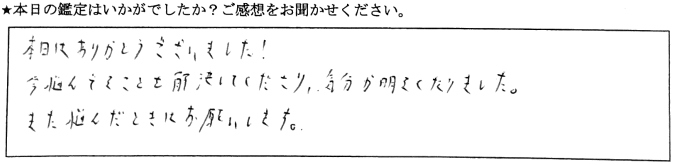 ★本日の鑑定はいかがでしたか？ご感想をお聞かせください。
本日はありがとうございました！
今悩んでることを解決してくださり、気分が明るくなりました。
また悩んだときはお願いします。